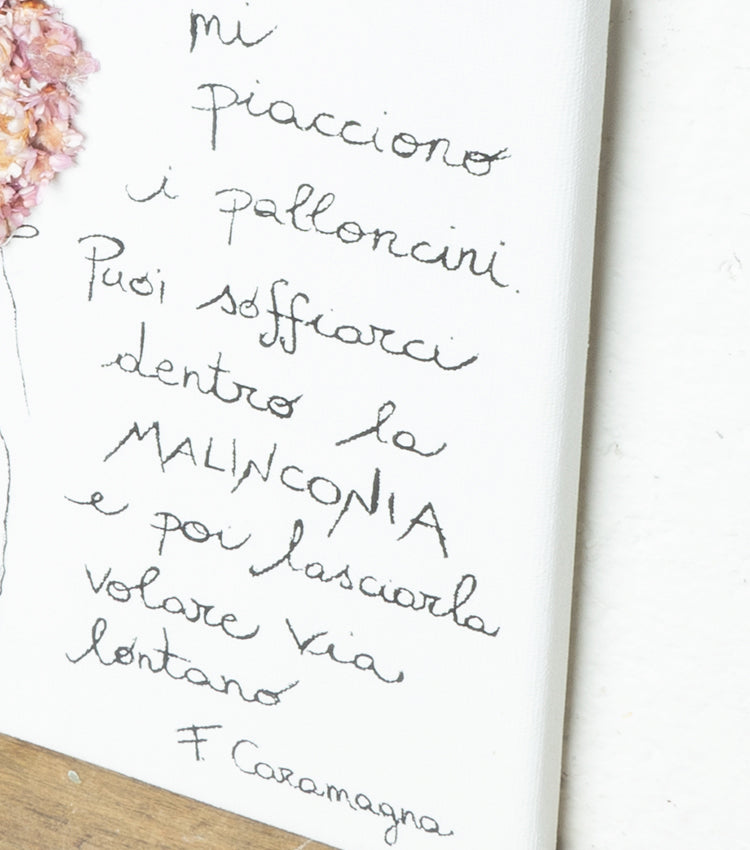 mi
piacciono
i palloncini.
Puoi soffiarci
dentro la
MALINCONIA
e poi lasciarla
volare via
lontano
F. Caramagna